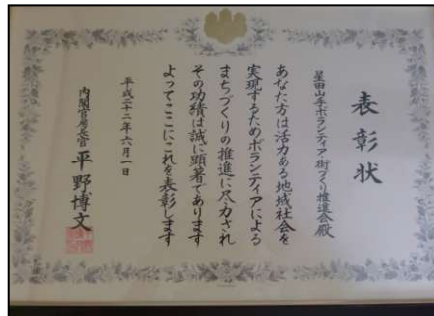 表彰状
星田山手ボランティア街づくり推進会殿
あなた方は活力ある地域社会を
実現するためボランティアによる
まちづくりの推進に尽力され
その功績は誠に顕著であります
よってここにこれを表彰します
平成二十二年六月一日
内閣官房長官 平野博文